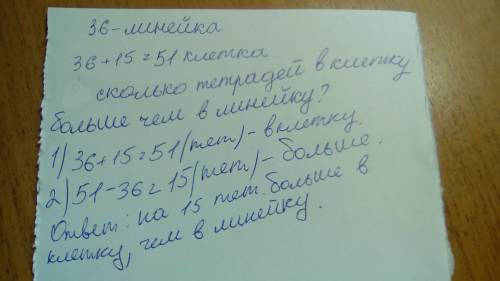 36-линейка
36+15=51 клетка
сколько тетрадей в клетку
больше чем в линейку?
1) 36+15=51(тет)-в клетку.
2) 51-36=15(тет)-больше.
Ответ: на 15 тет. больше в
клетку, чем в линейку.